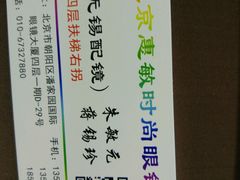 北京惠敏时尚眼镜
无锡配镜)
四层扶梯右拐
朱敏元
蒋锡珍
北京市朝阳区潘家园国际
眼镜大厦四层一期D-29号
010-67327880